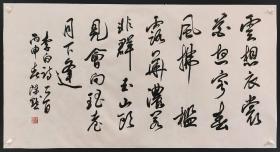 雲想衣裳
花想容春
風拂檻
露華濃若
非群玉山頭
見會向瑶台
月下逢
李白詩一首
丙申春